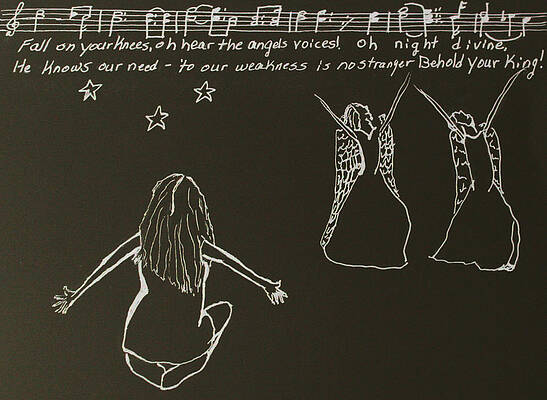 Fall on your knees, oh hear the angels voices! Oh night divine,
He knows our need - to our weakness is no stranger Behold your King!